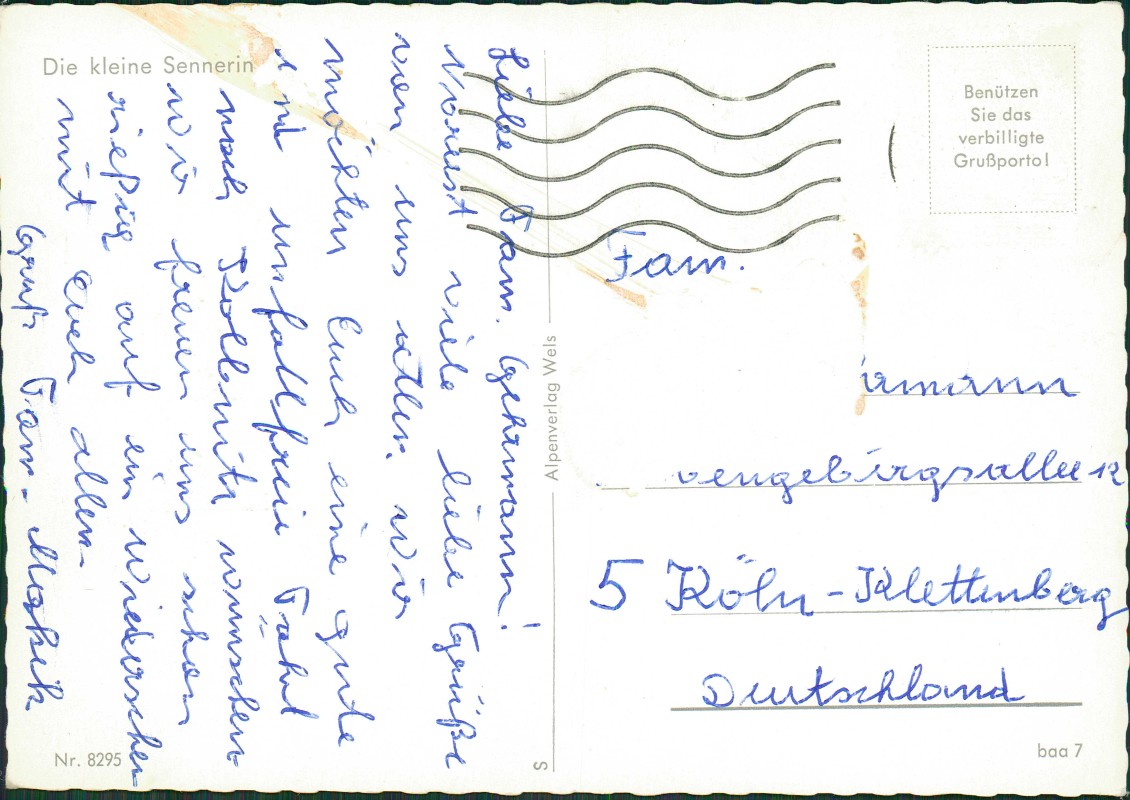 Die kleine Sennerin
Liebe Fam. Gehrmann!
Vorerst viele liebe Grüße
von uns allen. Wir
möchten Euch eine gude
und unfallfreie Fahrt
nach wünschen
wir freuen uns schon
rießig auf ein wiedersehen
mit euch allen.
Gruß Fam.
Nr. 8295
Alpenverlag Wels
S
Benützen
Sie das
verbilligte
Grußporto!
Fam.
rmann
engebirgsallee
5 Köln-Klettenberg
Deutschland
baa 7